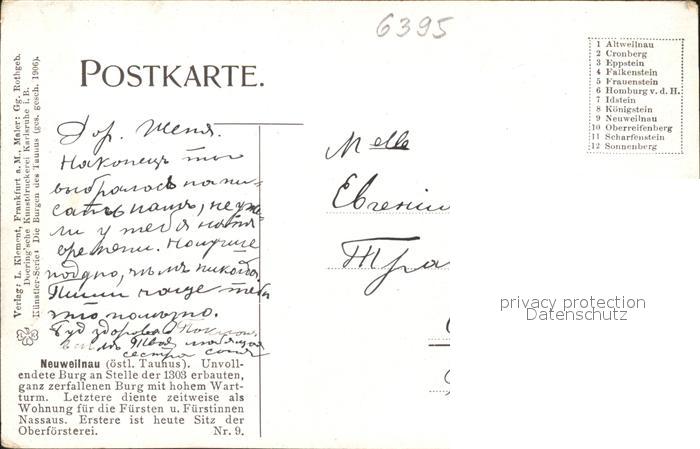 6395
POSTKARTE.
1 Altweilnau
2 Cronberg
3 Eppstein
4 Falkenstein
5 Frauenstein
6 Homburg v. d. H.
7 Idstein
8 Königstein
9 Neuweilnau
10 Oberreifenberg
11 Scharfenstein
12 Sonnenberg
Verlag: L. Klement, Frankfurt a. M. Maler: Gg. Rothgeb.
Doering'sche Kunstdruckerei Karlsruhe i. B.
Künstler-Serie: Die Burgen des Taunus (ges. gesch. 1906).
Дор. Женя.
Наконецъ ты
выбралась напи-
сать намъ, неуже-
ли у тебя нѣтъ
времени. Но лучше
поздно, чѣмъ никогда.
Пиши чаще тебѣ
это полезно.
Будь здорова
Твоя любящая
сестра Соня
Melle
Евгении
Тра
Neuweilnau (östl. Taunus). Unvoll-
endete Burg an Stelle der 1303 erbauten,
ganz zerfallenen Burg mit hohem Wart-
turm. Letztere diente zeitweise als
Wohnung für die Fürsten u. Fürstinnen
Nassaus. Erstere ist heute Sitz der
Oberförsterei. Nr. 9.
privacy protection
Datenschutz